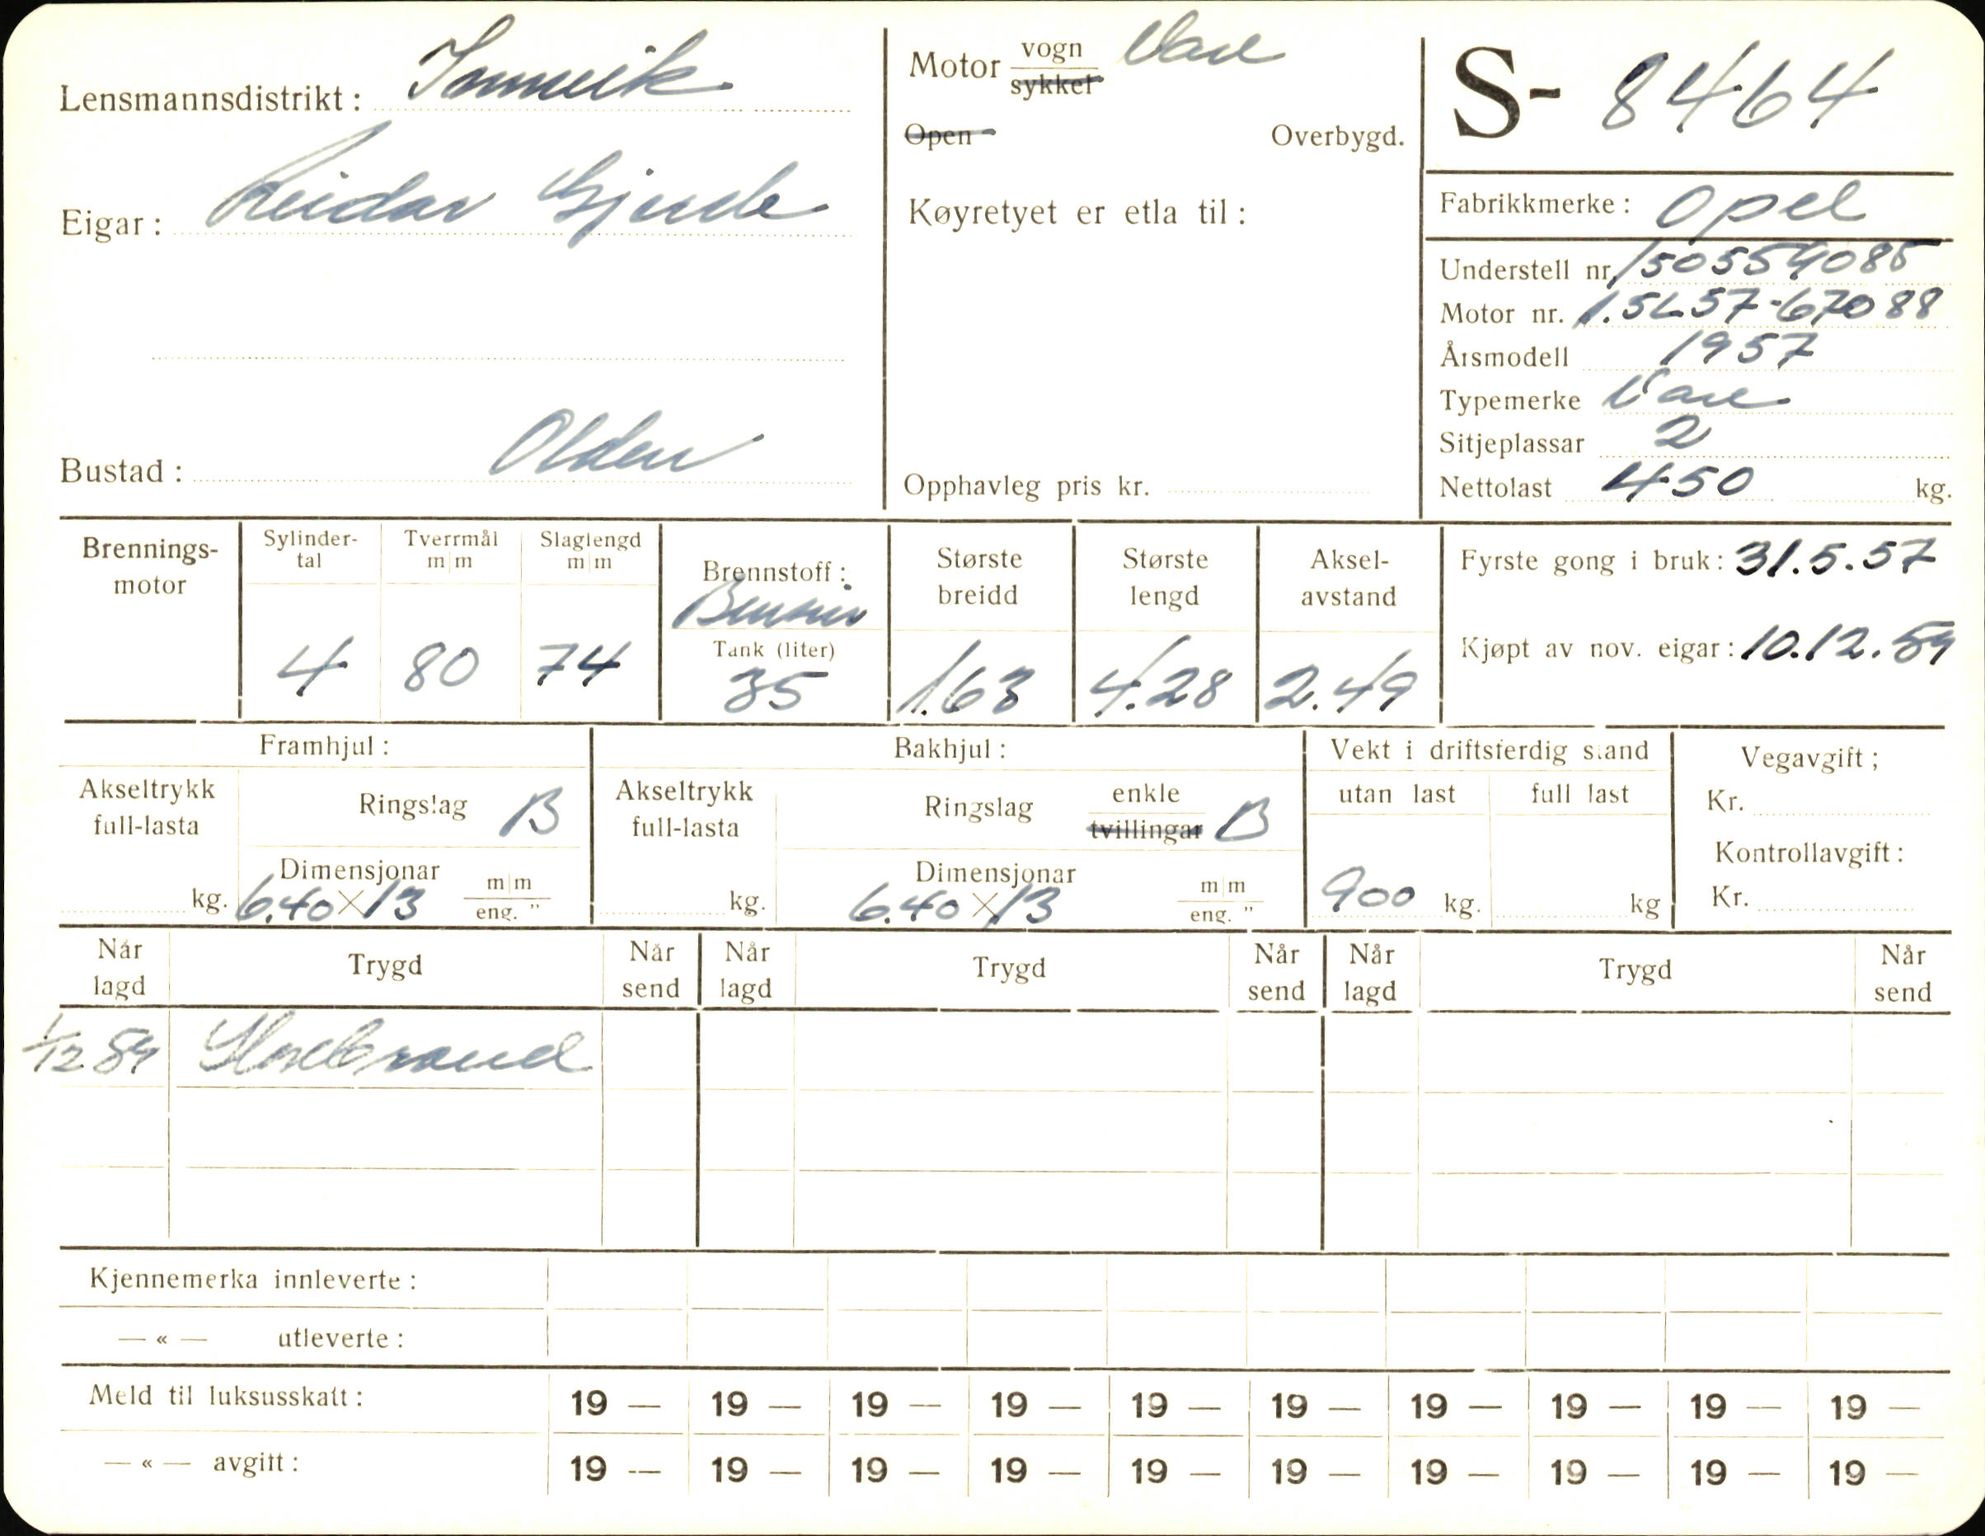 Lensmannsdistrikt: Innvik
Eigar: Reidar Gjerde
Bustad: Olden
Motor vogn Vare
sykkel
Open Overbygd.
Køyretyet er etla til:
Opphavleg pris kr.
S- 8464
Fabrikkmerke: Opel
Understell nr. 150554085
Motor nr. 1.5L57-67088
Årsmodell 1957
Typemerke Vare
Sitjeplassar 2
Nettolast 450 kg.
Brennings-
motor
Sylinder-
tal
4
Tverrmål
m|m
80
Slaglengd
m|m
74
Brennstoff:
Bensin
Tank (liter)
35
Største
breidd
1.63
Største
lengd
4.28
Aksel-
avstand
2.49
Fyrste gong i bruk: 31.5.57
Kjøpt av nov. eigar: 10.12.59
Framhjul:
Akseltrykk
full-lasta
kg.
Ringslag B
Dimensjonar
6.40 × 13 m|m
eng. "
Bakhjul:
Akseltrykk
full-lasta
kg.
Ringslag enkle
tvillingar B
Dimensjonar
6.40 × 13 m|m
eng. "
Vekt i driftsferdig stand
utan last full last
900 kg. kg
Vegavgift;
Kr.
Kontrollavgift:
Kr.
Når
lagd
Trygd
Når
send
Når
lagd
Trygd
Når
send
Når
lagd
Trygd
Når
send
1/12 59 Storebrand
Kjennemerka innleverte:
— « — utleverte:
Meld til luksusskatt: 19 — 19 — 19 — 19 — 19 — 19 — 19 — 19 — 19 — 19 —
— « — avgitt: 19 — 19 — 19 — 19 — 19 — 19 — 19 — 19 — 19 — 19 —